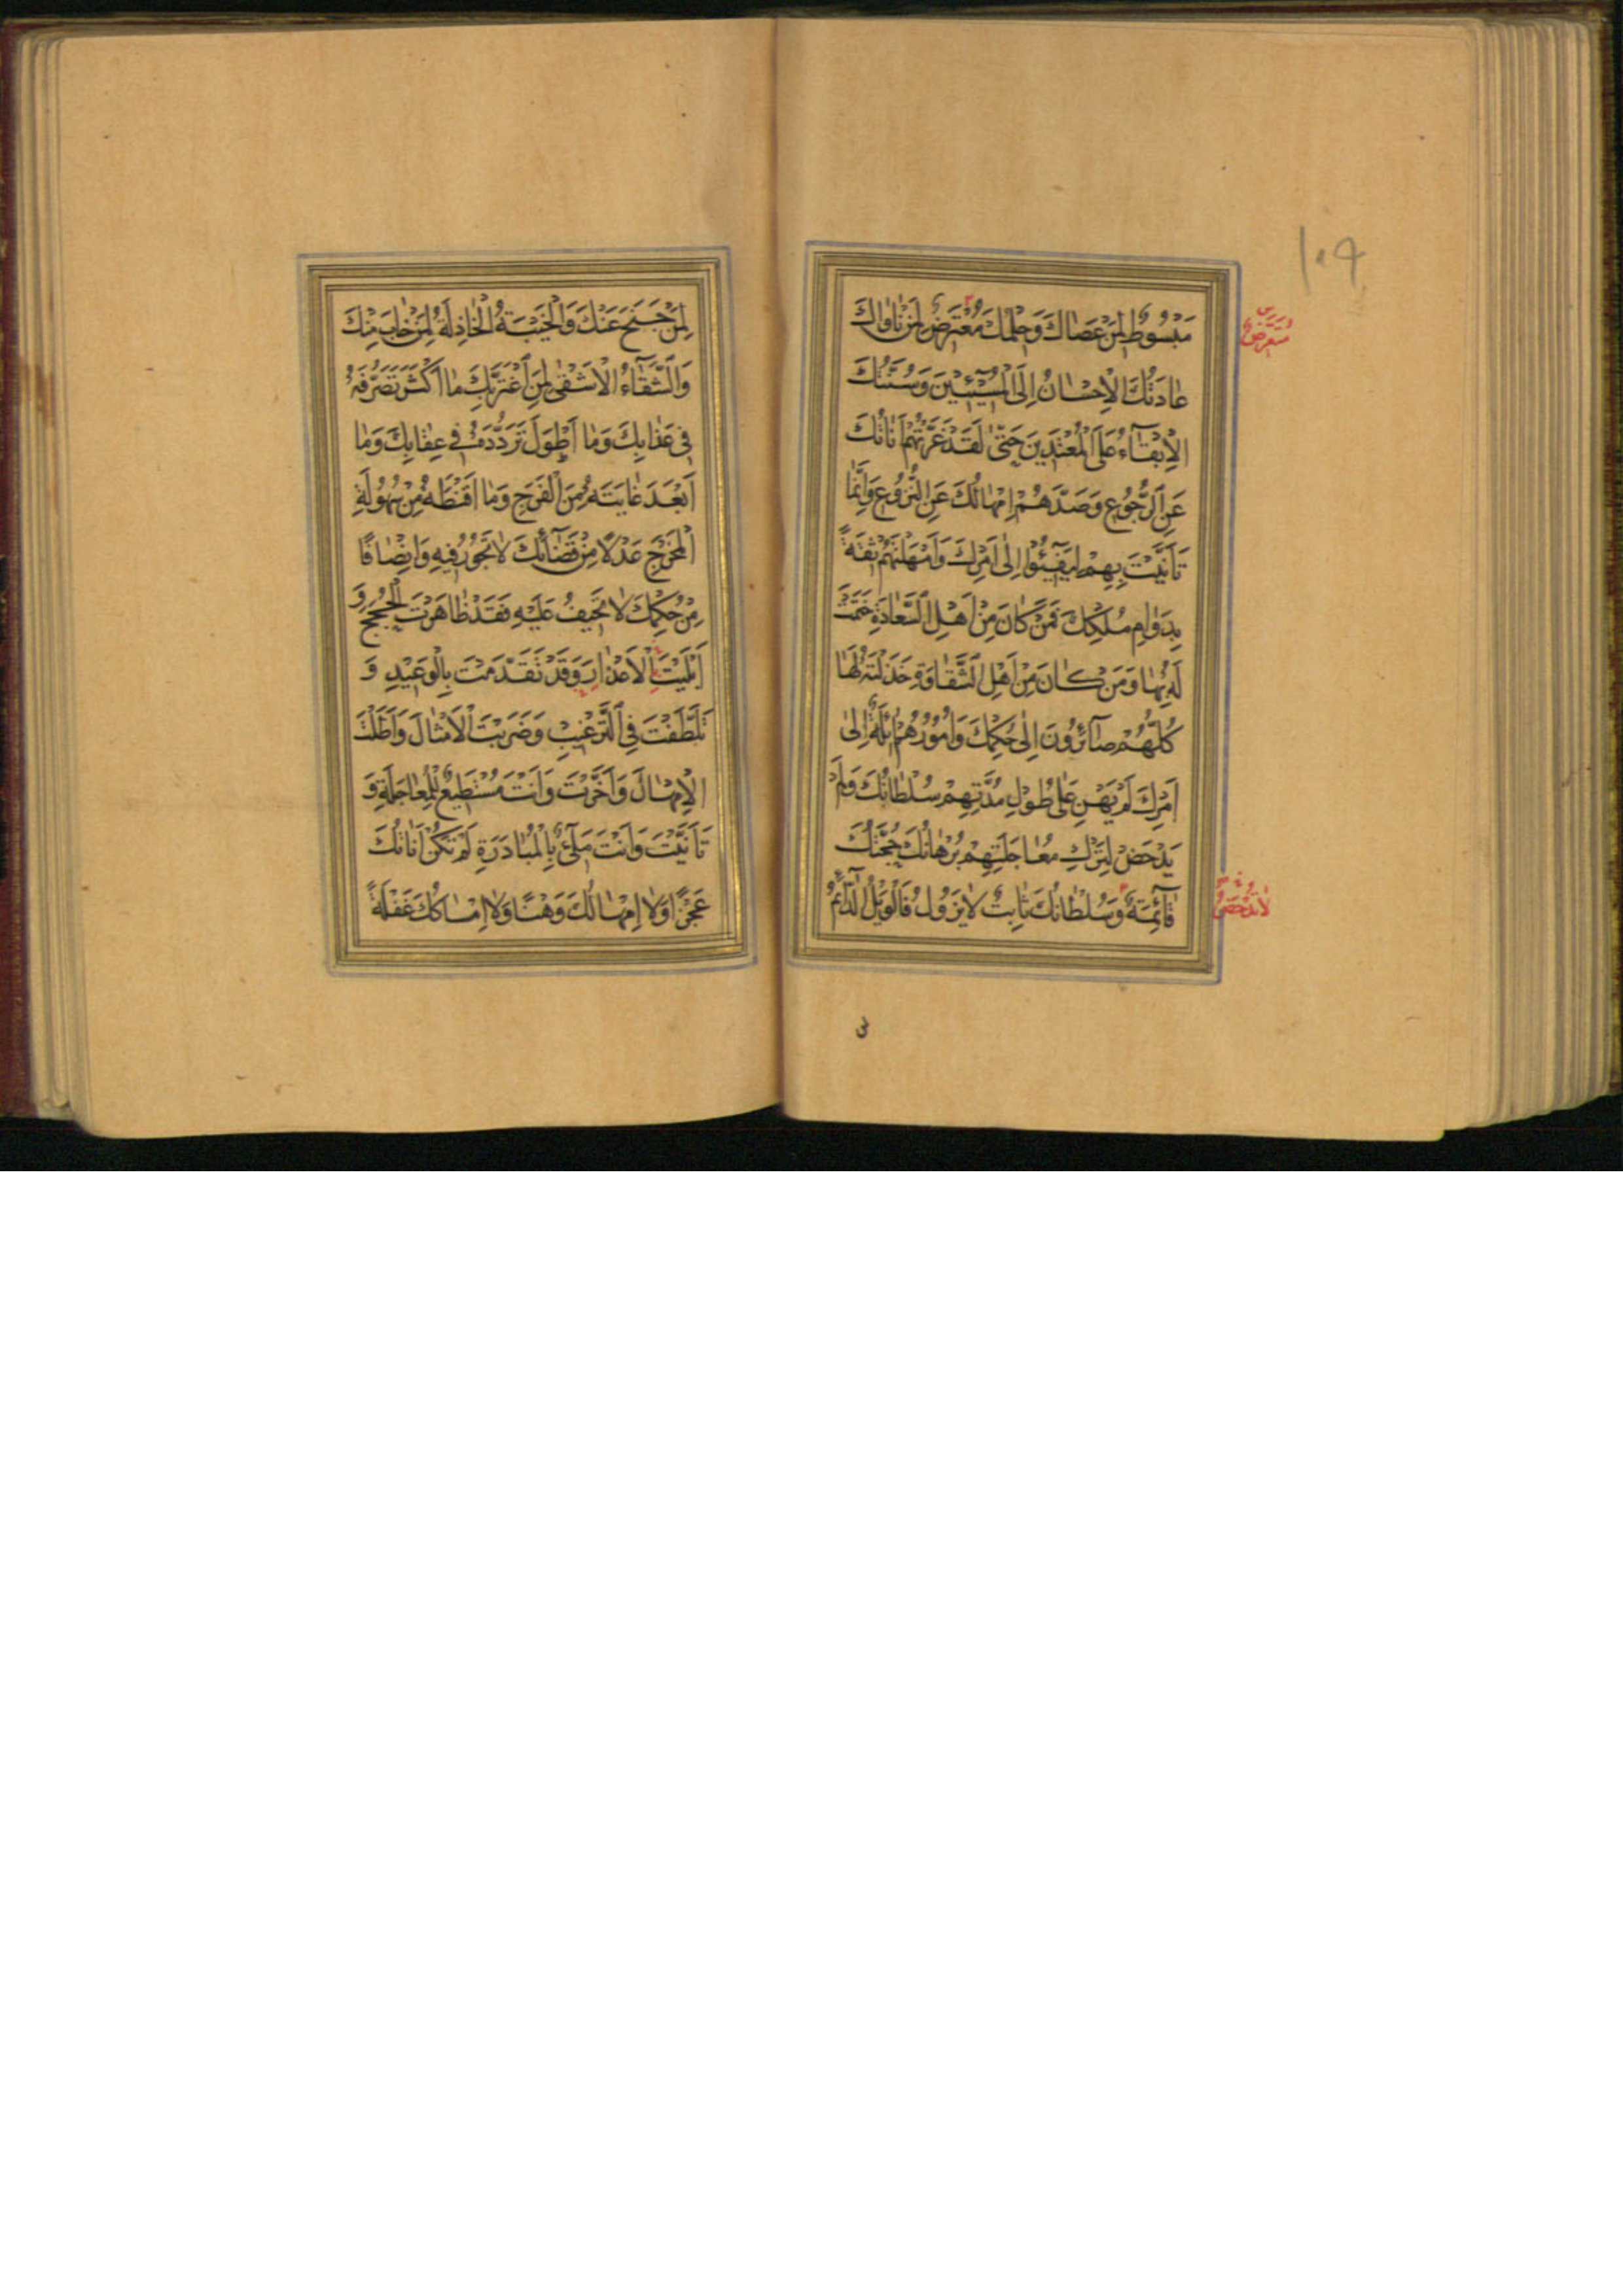 ١٠٩
مَبْسُوطٌ لِمَنْ عَصَاكَ وَحِلْمُكَ مُعْتَرِضٌ لِمَنْ نَاوَاكَ
مُتَعَرِّضٌ
عَادَتُكَ الْإِحْسَانُ إِلَى الْمُسِيئِينَ وَسُنَّتُكَ
الْإِبْقَاءُ عَلَى الْمُعْتَدِينَ حَتَّى لَقَدْ غَرَّتْهُمْ أَنَاتُكَ
عَنِ الرُّجُوعِ وَصَدَّهُمْ إِمْهَالُكَ عَنِ النُّزُوعِ وَإِنَّمَا
تَأَنَّيْتَ بِهِمْ لِيَفِيئُوا إِلَى أَمْرِكَ وَأَمْهَلْتَهُمْ ثِقَةً
بِدَوَامِ مُلْكِكَ فَمَنْ كَانَ مِنْ أَهْلِ السَّعَادَةِ خَتَمْتَ
لَهُ بِهَا وَمَنْ كَانَ مِنْ أَهْلِ الشَّقَاوَةِ خَذَلْتَهُ لَهَا
كُلُّهُمْ صَائِرُونَ إِلَى حُكْمِكَ وَأُمُورُهُمْ آئِلَةٌ إِلَى
أَمْرِكَ لَمْ يَهِنْ عَلَى طُولِ مُدَّتِهِمْ سُلْطَانُكَ وَلَمْ
يَدْحَضْ لِتَرْكِ مُعَاجَلَتِهِمْ بُرْهَانُكَ حُجَّتُكَ
قَائِمَةٌ وَسُلْطَانُكَ ثَابِتٌ لَا يَزُولُ فَالْوَيْلُ الدَّائِمُ
لَا تُدْحَضُ
لِمَنْ جَنَحَ عَنْكَ وَالْخَيْبَةُ الْخَاذِلَةُ لِمَنْ خَابَ مِنْكَ
وَالشَّقَاءُ الْأَشْقَى لِمَنِ اغْتَرَّ بِكَ مَا أَكْثَرَ تَصَرُّفَهُ
فِي عَذَابِكَ وَمَا أَطْوَلَ تَرَدُّدَهُ فِي عِقَابِكَ وَمَا
أَبْعَدَ غَايَتَهُ مِنَ الْفَرَجِ وَمَا أَقْنَطَهُ مِنْ سُهُولَةِ
الْمَخْرَجِ عَدْلًا مِنْ قَضَائِكَ لَا تَجُورُ فِيهِ وَإِنْصَافًا
مِنْ حُكْمِكَ لَا تَحِيفُ عَلَيْهِ فَقَدْ ظَاهَرْتَ الْحُجَجَ وَ
أَبْلَيْتَ الْأَعْذَارَ وَقَدْ تَقَدَّمْتَ بِالْوَعِيدِ وَ
تَلَطَّفْتَ فِي التَّرْغِيبِ وَضَرَبْتَ الْأَمْثَالَ وَأَطَلْتَ
الْإِمْهَالَ وَأَخَّرْتَ وَأَنْتَ مُسْتَطِيعٌ لِلْمُعَاجَلَةِ وَ
تَأَنَّيْتَ وَأَنْتَ مَلِيءٌ بِالْمُبَادَرَةِ لَمْ تَكُنْ أَنَاتُكَ
عَجْزًا وَلَا إِمْهَالُكَ وَهْنًا وَلَا إِمْسَاكُكَ غَفْلَةً